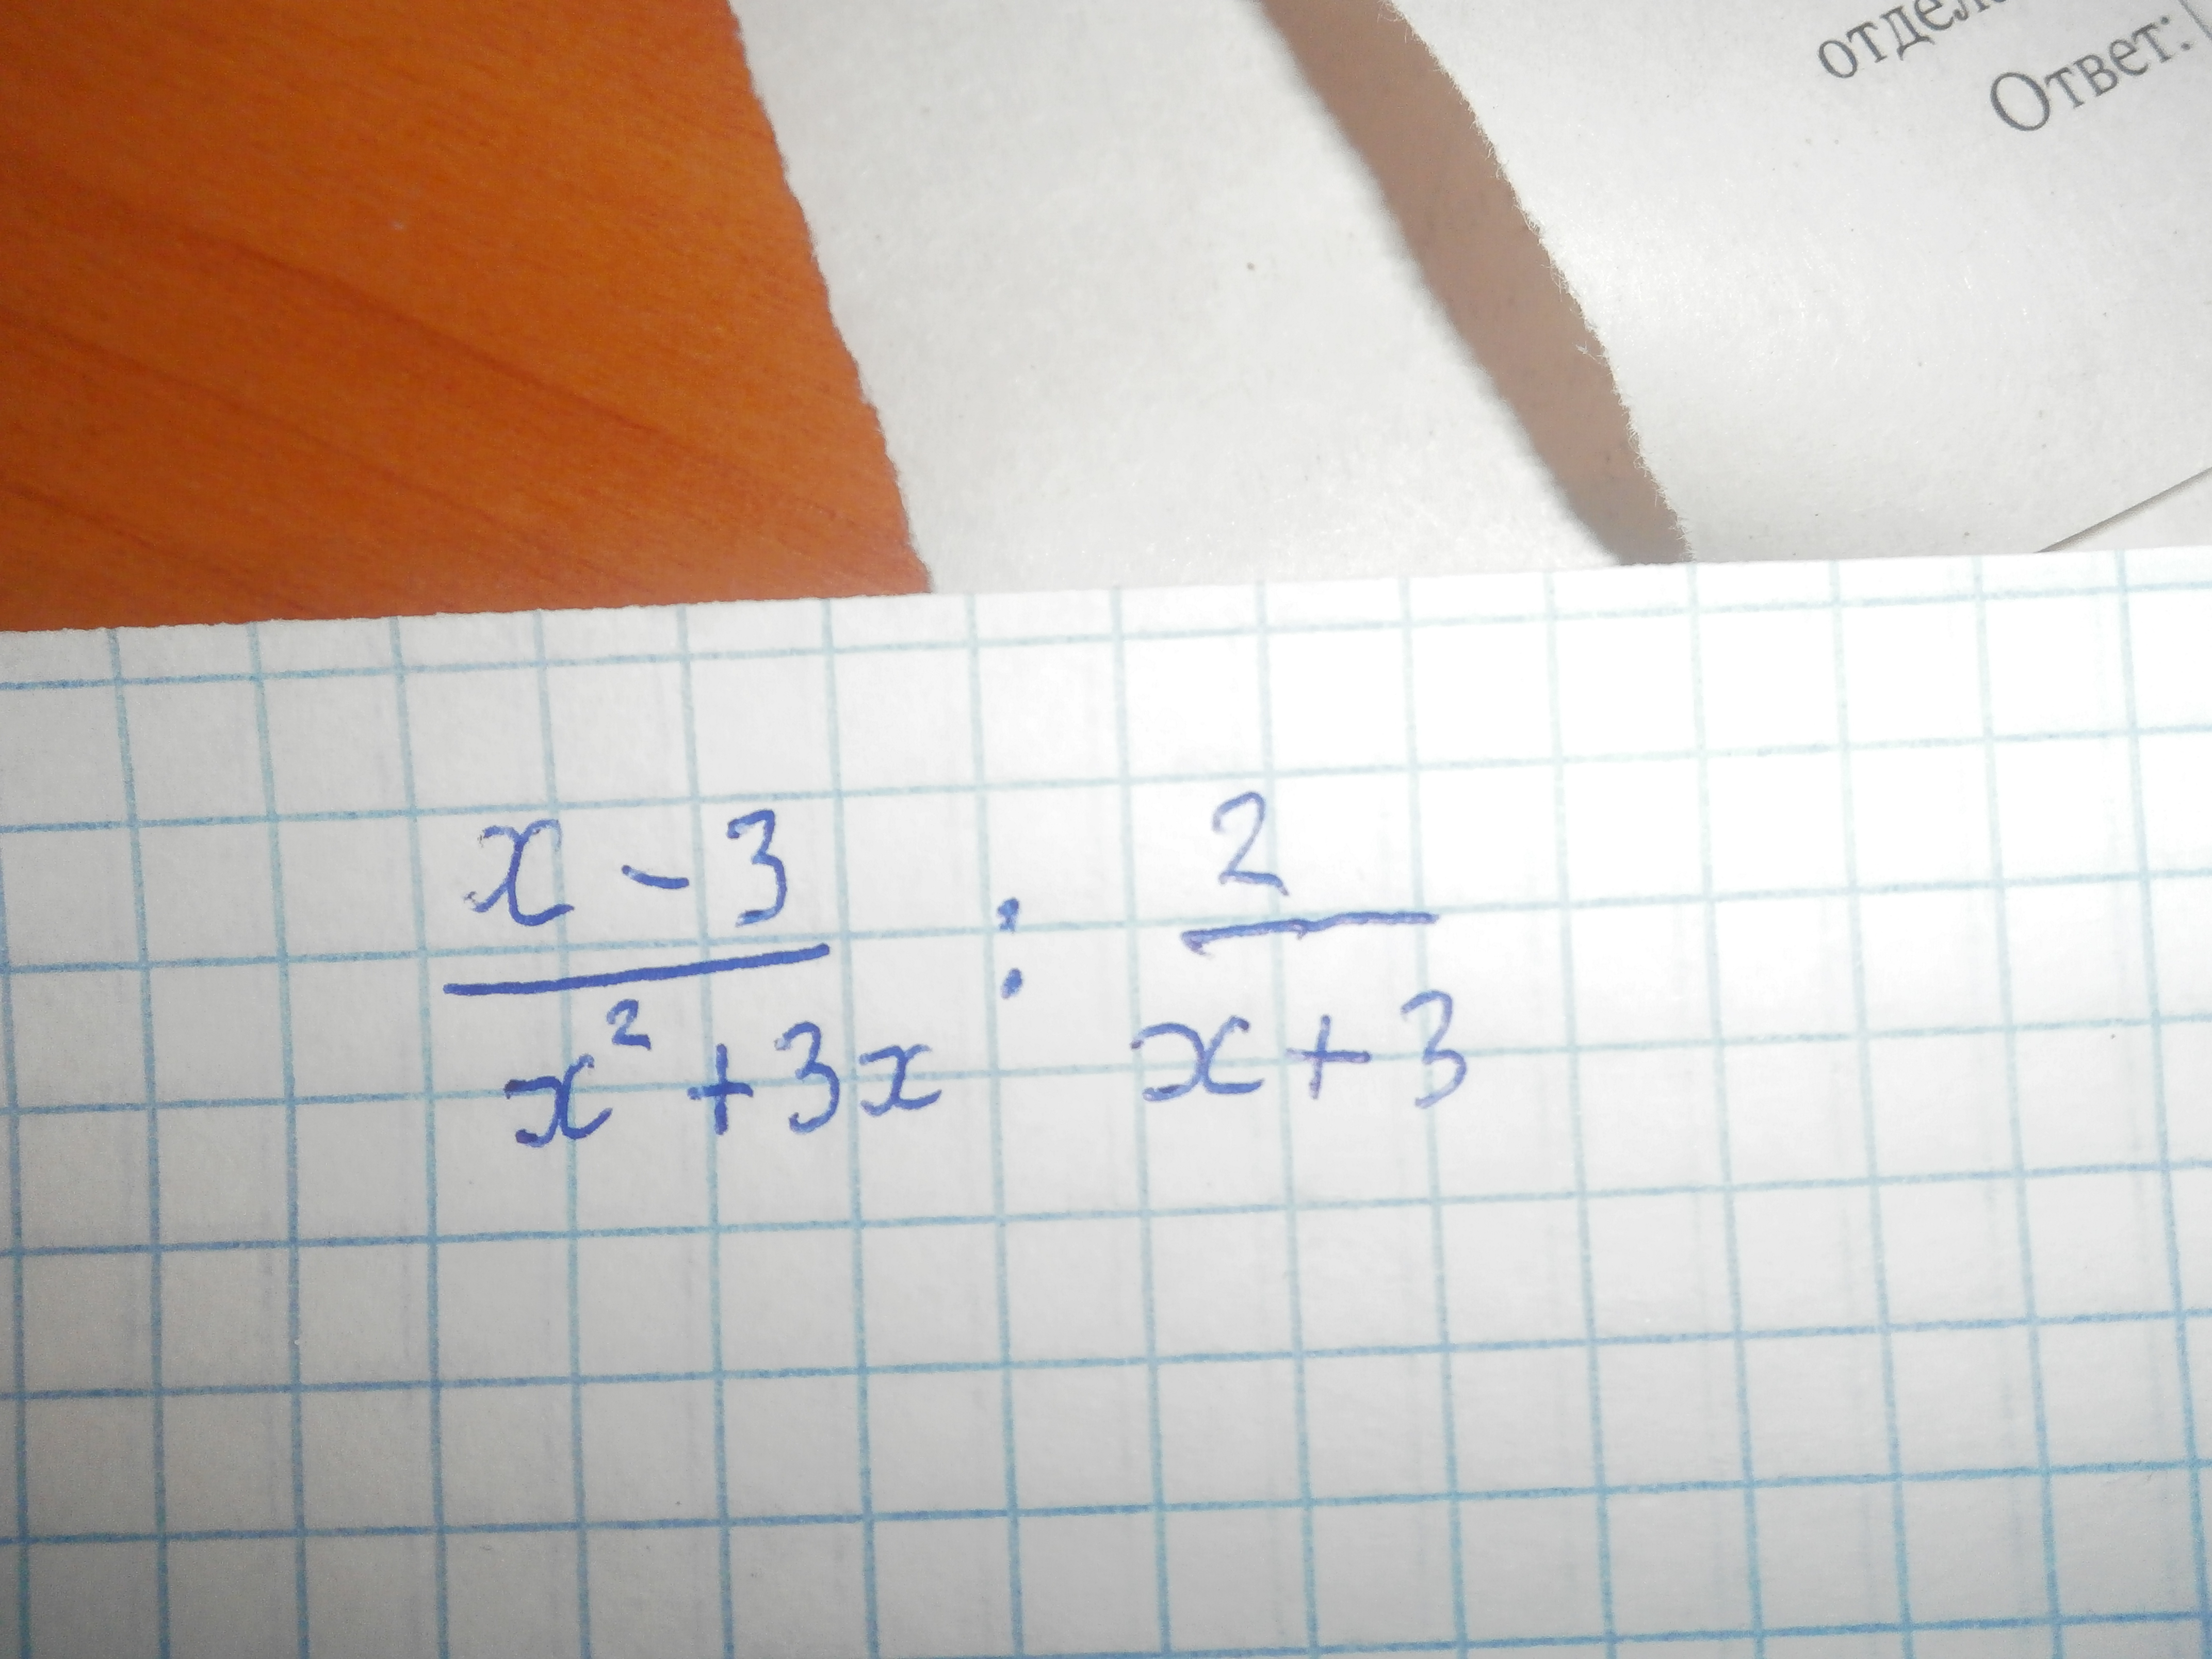 отдел
Ответ:
x - 3 / x² + 3x : 2 / x + 3